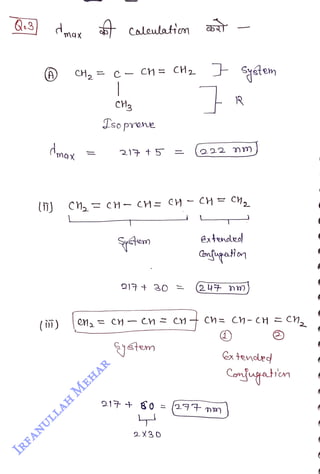 Q.3] dmax की Calculation करो —
(A) CH₂ = C – CH = CH₂ ] System
|
CH₃ ] R
Isoprene
dmax = 217 + 5 = 222 nm
(ii) CH₂ = CH – CH = CH – CH = CH₂
System Extended
Conjugation
217 + 30 = 247 nm
(iii) CH₂ = CH – CH = CH – CH = CH – CH = CH₂
① ②
System Extended
Conjugation
217 + 60 = 277 nm
2×30
IRFANULLAH MEHAR